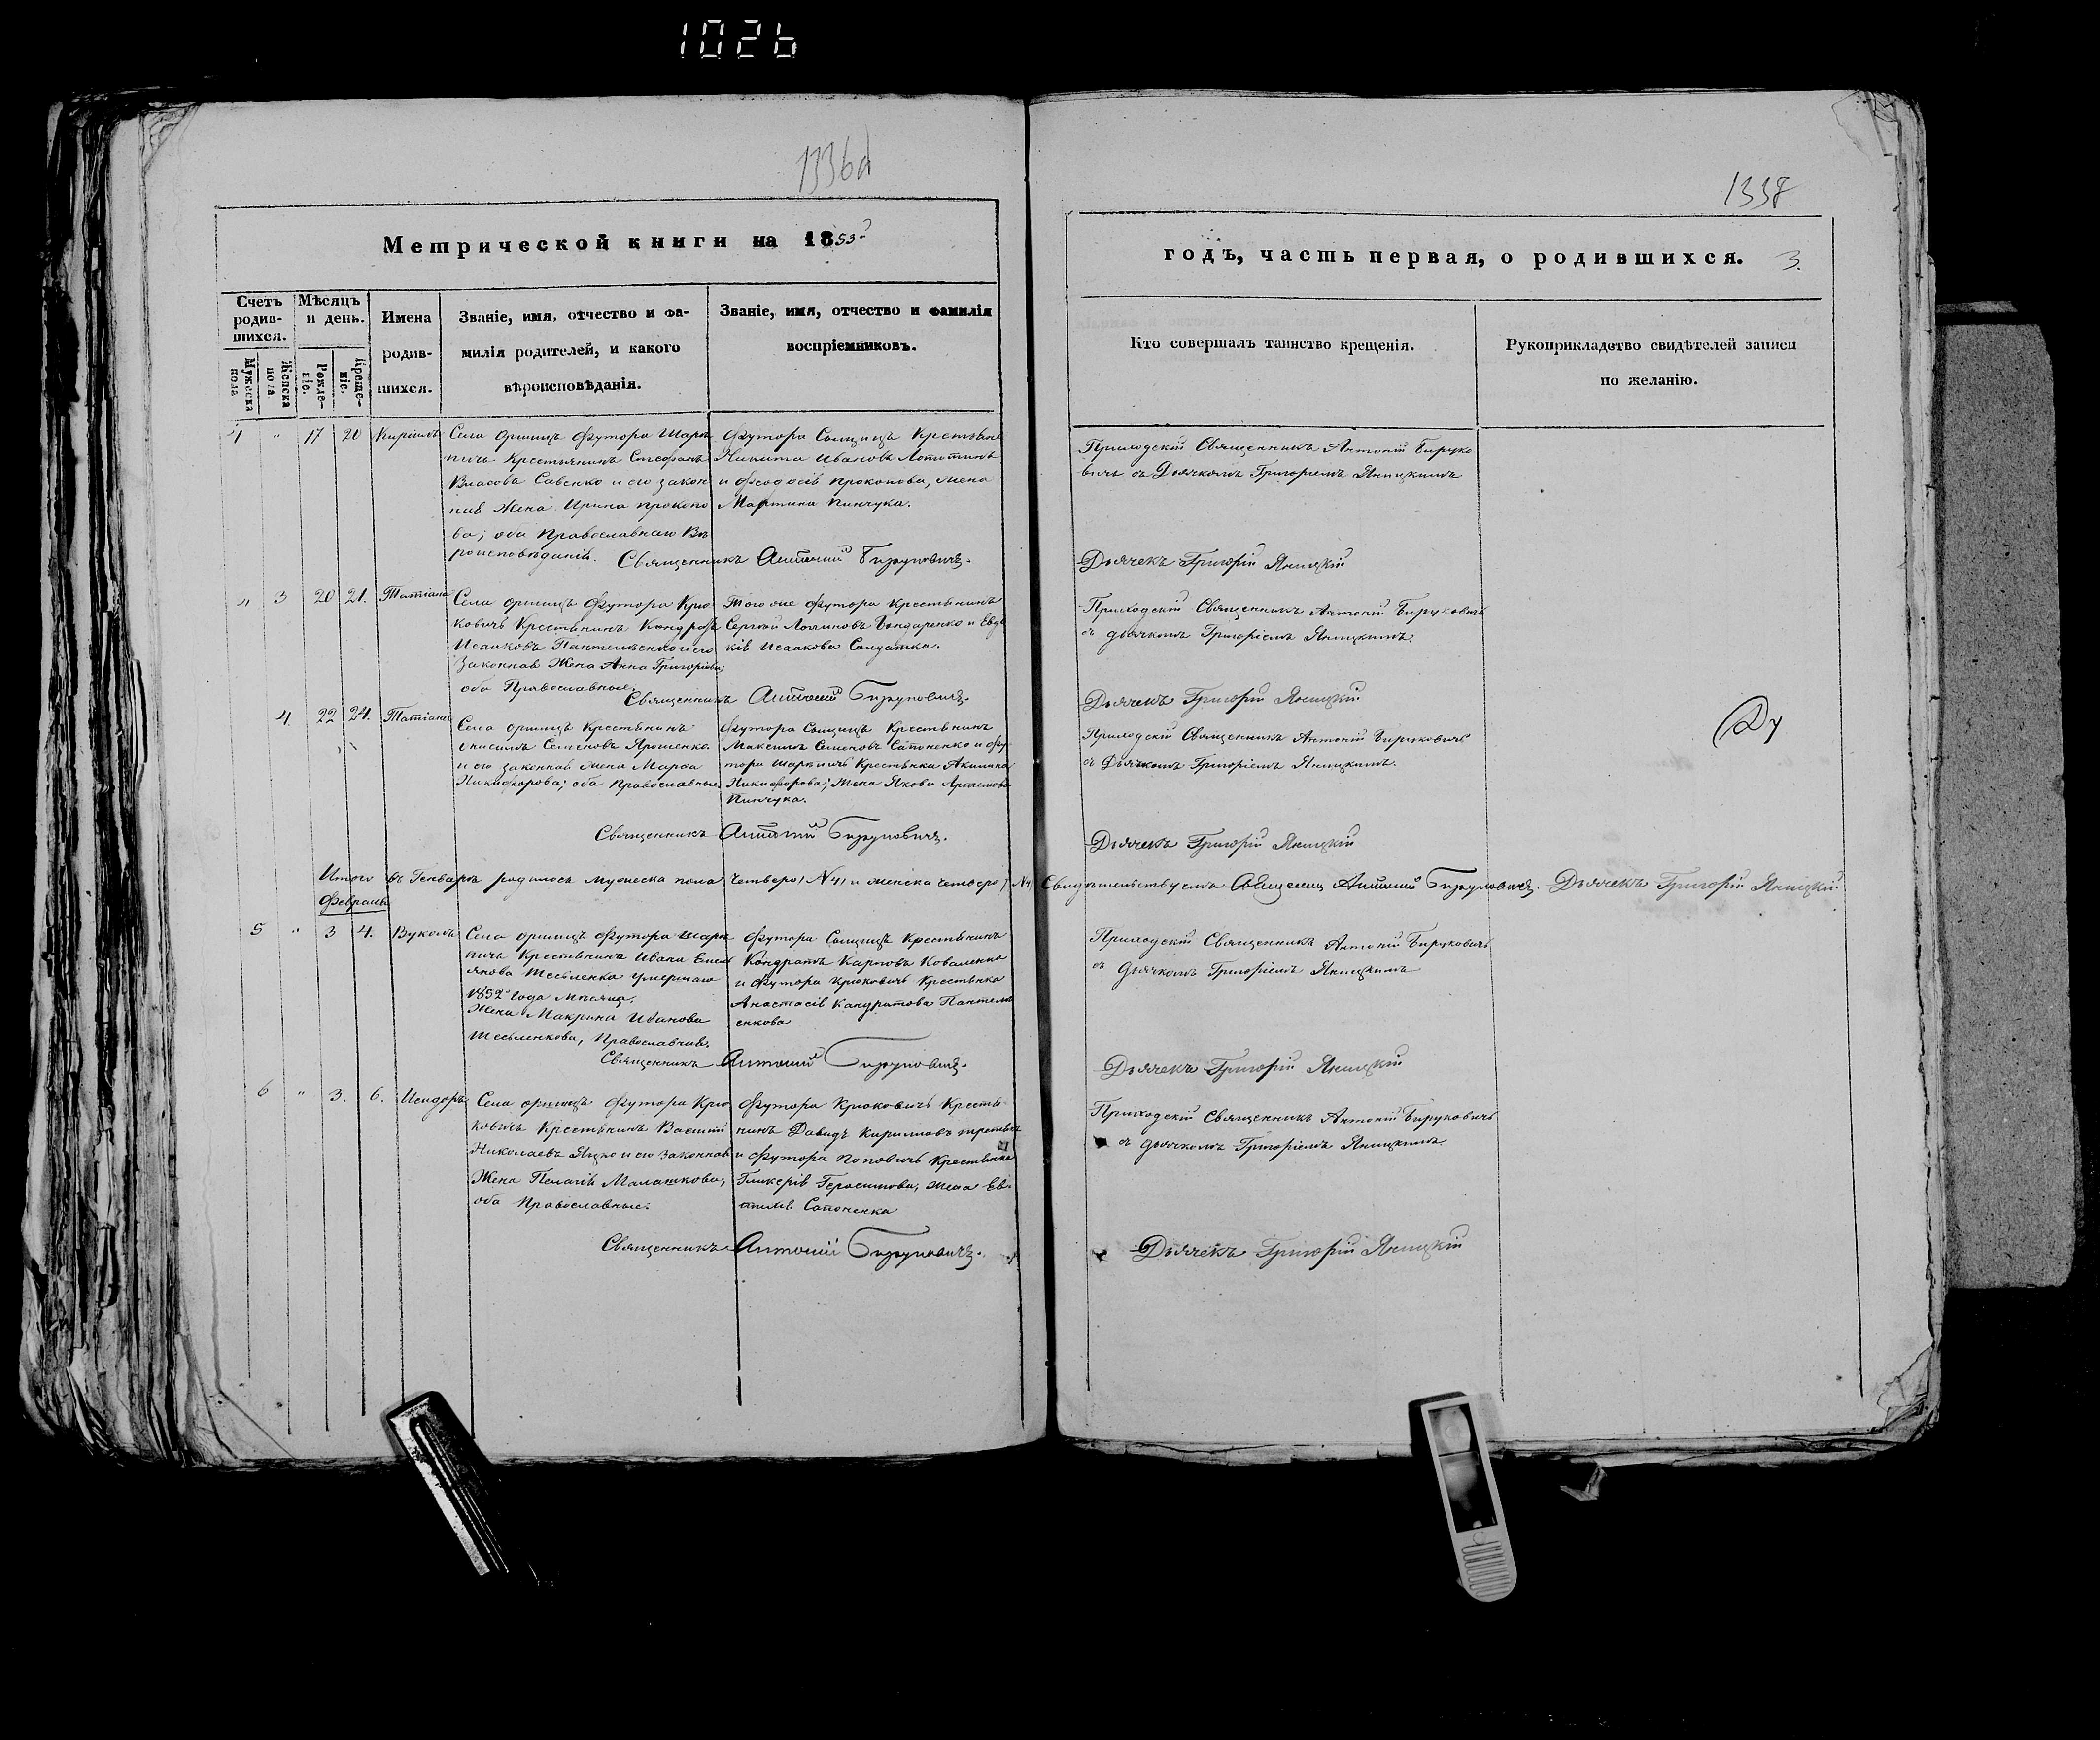 1026
1336
1338.
Метрической книги на 1853
годъ, часть первая, о родившихся. 3.
Счетъ родив-
шихся.
Мужеска пола
Женска пола
Мѣсяцъ
и день.
Рожде-
ніе.
Креще-
ніе.
Имена
родив-
шихся.
Званіе, имя, отчество и фа-
милія родителей, и какого
вѣроисповѣданія.
Званіе, имя, отчество и фамилія
воспріемниковъ.
Кто совершалъ таинство крещенія.
Рукоприкладство свидѣтелей записи
по желанію.
4 " 17 20 Кирилъ
Села Оршицъ Футора Шарк
пичь Крестьянинъ Стефанъ
Власовъ Савенко и его закон
ная Жена Ирина Прокопо
ва; оба Православнаго Вѣ
роисповѣданія.
Футора Солицъ Крестьяни
Никита Ивановъ
и Феодосія Прокопова, жена
Мартина Пинчука.
Священникъ Антоній Бируковичъ.
Приходскій Священникъ Антоній Бируко
вичь съ Дьячкомъ Григоріемъ Яницкимъ
Дьячекъ Григорій Яницкій
" 3 20 21. Татіана
Села Оршицъ Футора Крю
ковичь Крестьянинъ Кондратъ
Исааковъ Пантелѣенко и его
Законная Жена Анна Григоріева;
оба Православные.
Того же Футора Крестьянинъ
Сергѣй Бондаренко и Евдо
кія Исаакова Солдатка.
Священникъ Антоній Бируковичъ.
Приходскій Священникъ Антоній Бируковичь
съ дьячкомъ Григоріемъ Яницкимъ.
Дьячекъ Григорій Яницкій
4. 22 24. Татіана
Села Оршицъ Крестьянинъ
Онисимъ Семеновъ Ярошенко
и его законная жена Марфа
Никифорова; оба Православные.
Футора Солицъ Крестьянинъ
Максимъ Семеновъ Сапоненко и фу
тора Шаркпичь Крестьянка Акилина
Никифорова; Жена Якова Артемова
Пинчука.
Священникъ Антоній Бируковичъ.
Приходскій Священникъ Антоній Бируковичь
съ Дьячкомъ Григоріемъ Яницкимъ.
Дьячекъ Григорій Яницкій
Итого въ Генварѣ родилось мужеска пола четверо / N4 / и женска четверо / N4 Свидѣтельствуемъ Священникъ Антоній Бируковичъ. Дьячекъ Григорій Яницкій
Февраль
5 " 3 4. Вуколъ
Села Оршицъ Футора Шарк
пичь Крестьянина Ивана Емел
янова умершаго
1852 Года Мѣсяца,
Жена Макрина Иванова
Православная.
Футора Солицъ Крестьянинъ
Кондратъ Карповъ Коваленко
и Футора Крюковичь Крестьянка
Анастасія Кондратова Пантелѣ
енкова
Священникъ Антоній Бируковичъ.
Приходскій Священникъ Антоній Бируковичь
съ дьячкомъ Григоріемъ Яницкимъ
Дьячекъ Григорій Яницкій
6 " 3. 6. Исидоръ
Села Оршицъ Футора Крю
ковичь Крестьянинъ Василій
Николаевъ Яцко и его Законная
Жена Пелагія Малашкова;
оба Православные.
Футора Крюковичь Кресть
нинъ Давидъ Кириловъ
и Футора Поповичь Крестьянка
Гликерія Герасимова, жена Ев
Сапоненка
Священникъ Антоній Бируковичъ.
Приходскій Священникъ Антоній Бируковичь
съ дьячкомъ Григоріемъ Яницкимъ
Дьячекъ Григорій Яницкій